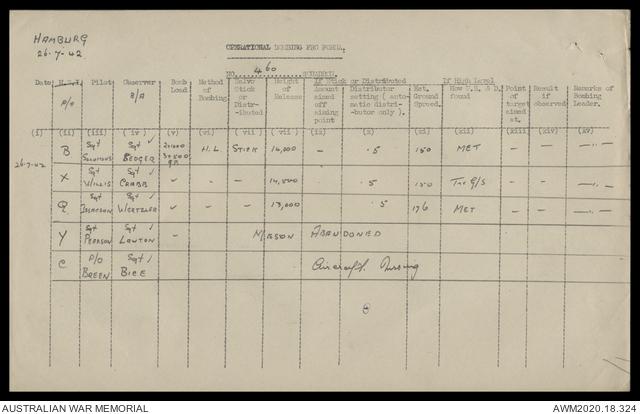 HAMBURG
26.7.42
OPERATIONAL BOMBING PRO FORMA.
NO. 460 SQUADRON.
Date Pilot Observer Bomb Load Method of Bombing Salvo Stick or Distr-ibuted Height of Release If Stick or Distributed Amount aimed off aiming point Distributor setting ( auto-matic distri-butor only ). Est. Ground Speed. If High Level How W.S. & D. found Point of target aimed at. Result if observed Remarks of Bombing Leader.
A/C B/A
(i) (ii) (iii) (iv) (v) (vi) (vii) (vii) (ix) (x) (xi) (xii) (xiii) (xiv) (xv)
26.7.42 B Sgt Solomons Sgt Bedger H.L. STICK 14,000 — .5 150 MET — — —"—
X Sgt Willis Sgt Crabb — — 14,500 .5 150 G/S — — —"—
Q Sgt Isaacson Sgt — — 13,000 .5 176 MET — — —"—
Y Sgt Pearson Sgt Lawton — MISSION ABANDONED
C P/O Breen Sgt Bice Aircraft Missing
AUSTRALIAN WAR MEMORIAL
AWM2020.18.324